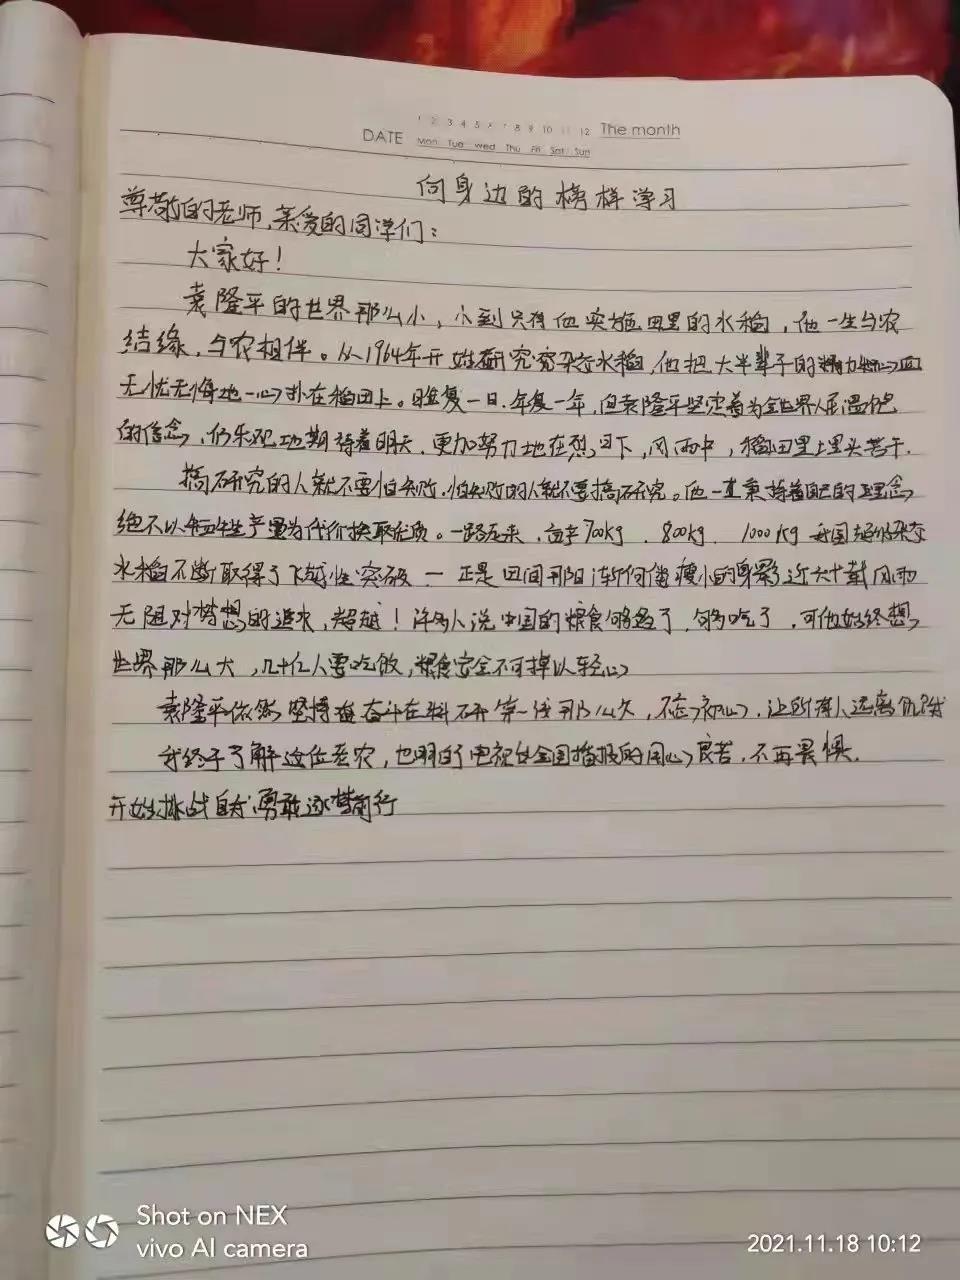 1 2 3 4 5 6 7 8 9 10 11 12 The month
DATE Mon Tue wed Thu Fri Sat Sun
向身边的榜样学习
尊敬的老师,亲爱的同学们:
大家好!
袁隆平的世界那么小,小到只有他实施田里的水稻,他一生与农
结缘,与农相伴。从1964年开始研究杂交水稻,他把大半辈子的精力
无忧无悔地一心扑在稻田上。日复一日.年复一年,但袁隆平坚定着为全世界人民温饱
的信念,仍乐观地期待着明天,更加努力地在烈日下,风雨中,稻田里埋头苦干.
搞研究的人就不要怕失败,怕失败的人就不要搞研究。他一直秉持着自己的理念
绝不以牺牲产量为代价换取优质。一路走来,亩产700kg,800kg,1000kg 我国超级杂交
水稻不断取得了飞越性突破 — 正是田间那日渐佝偻瘦小的身影近六十载风雨
无阻对梦想的追求,超越!许多人说中国的粮食够多了,够吃了,可他始终想,
世界那么大,几十亿人要吃饭,粮食安全不可掉以轻心
袁隆平依然坚持在奋斗在科研第一线那么久,不忘初心,让所有人远离饥饿
我终于了解这位老农,也明白了电视在全国播放的用心良苦,不再畏惧.
开始挑战自我,勇敢逐梦前行
Shot on NEX
vivo AI camera
2021.11.18 10:12